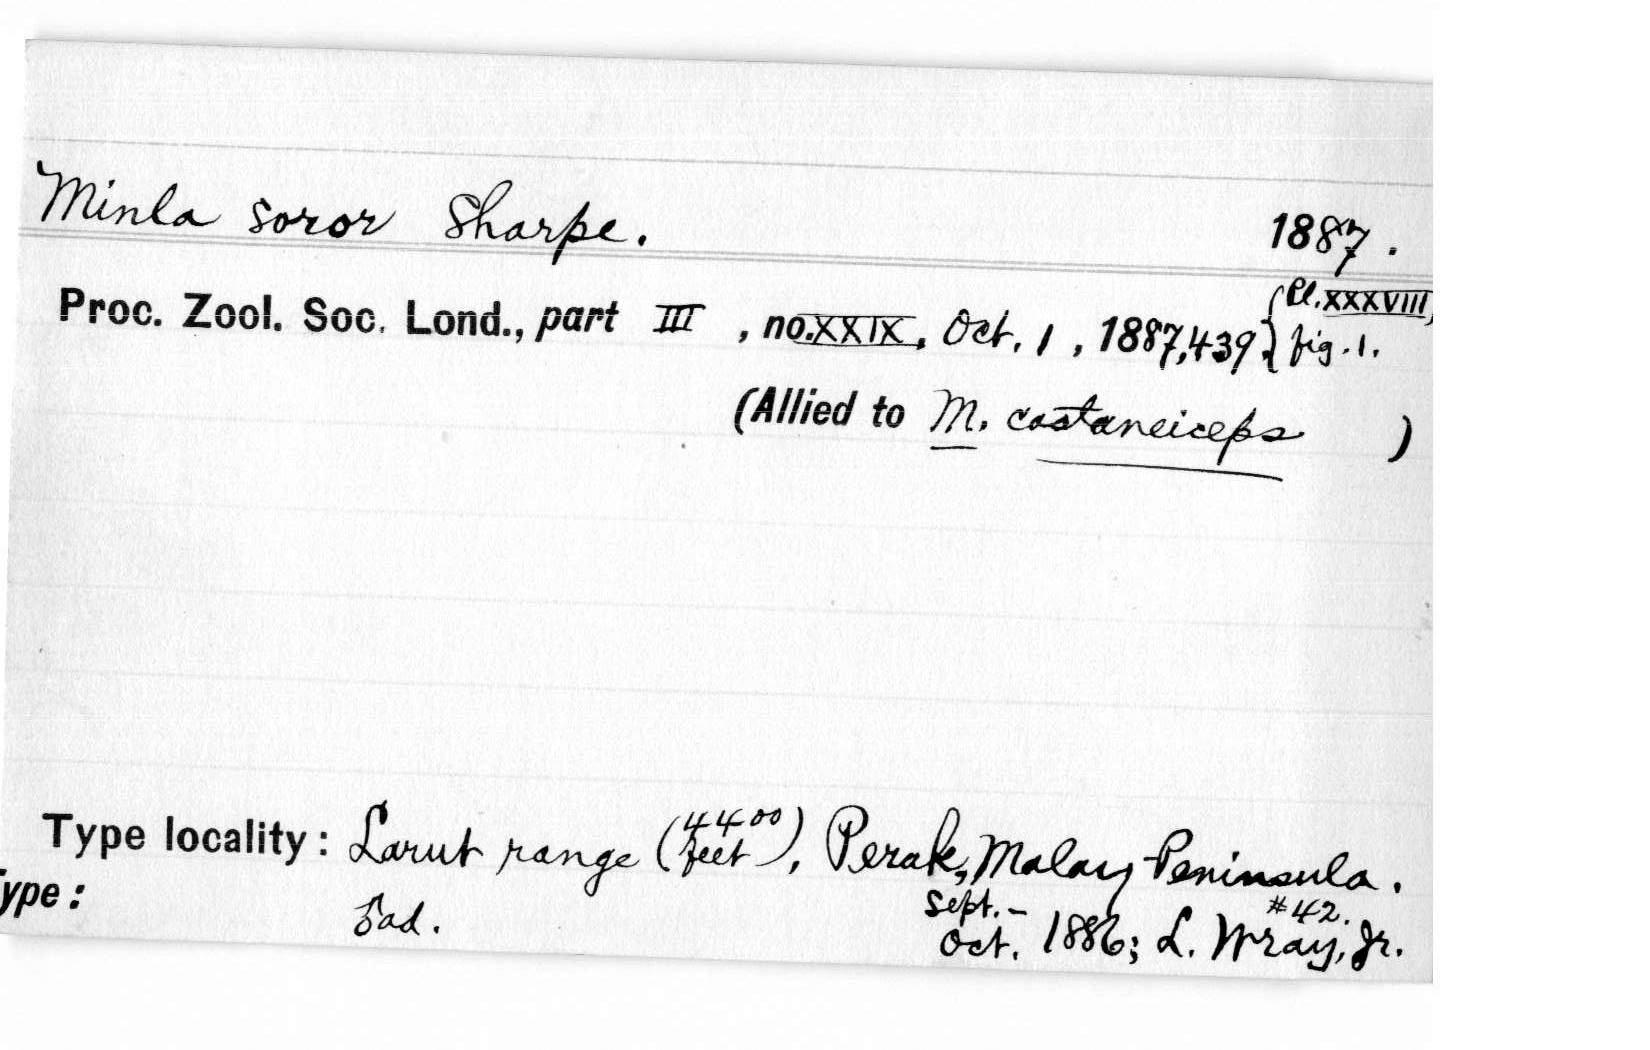 Minla soror Sharpe. 1887.
Proc. Zool. Soc. Lond., part III, no. XXIX, Oct. 1, 1887, 439. {Pl. XXXVIII,
fig. 1.
(Allied to M. castaneiceps )
Type locality: Larut range (4400 feet), Perak, Malay Peninsula.
ype: ad. Sept.- #42.
Oct. 1886; L. Wray, Jr.